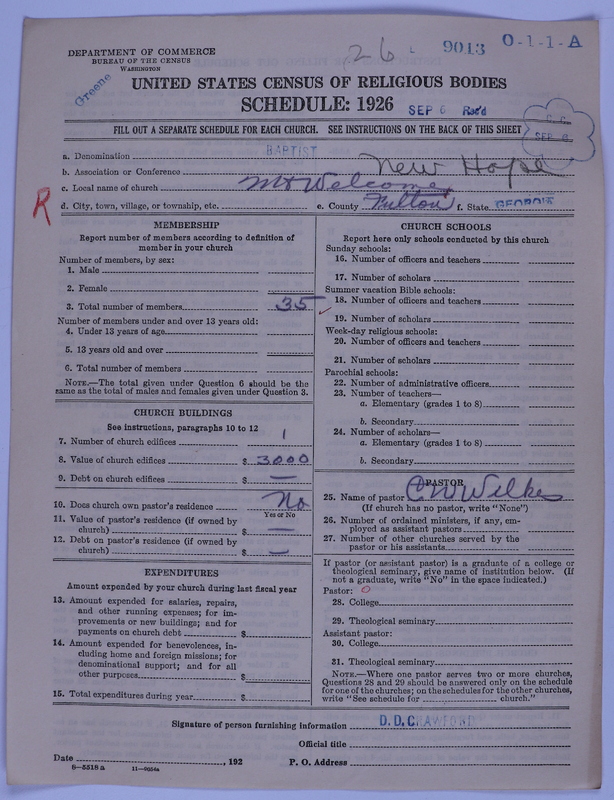 26 L 9013 O-1-1-A
DEPARTMENT OF COMMERCE
BUREAU OF THE CENSUS
WASHINGTON
Greene
UNITED STATES CENSUS OF RELIGIOUS BODIES
SCHEDULE: 1926
SEP 6 Rec'd
FILL OUT A SEPARATE SCHEDULE FOR EACH CHURCH. SEE INSTRUCTIONS ON THE BACK OF THIS SHEET
SEP 8
a. Denomination BAPTIST
b. Association or Conference New Hope
c. Local name of church Mt Welcome
d. City, town, village, or township, etc. e. County Fulton f. State GEORGIA
R
MEMBERSHIP
Report number of members according to definition of
member in your church
Number of members, by sex:
1. Male
2. Female
3. Total number of members 35
Number of members under and over 13 years old:
4. Under 13 years of age
5. 13 years old and over
6. Total number of members
NOTE.—The total given under Question 6 should be the
same as the total of males and females given under Question 3.
CHURCH BUILDINGS
See instructions, paragraphs 10 to 12
7. Number of church edifices 1
8. Value of church edifices $ 3000
9. Debt on church edifices $ —
10. Does church own pastor's residence No
Yes or No
11. Value of pastor's residence (if owned by
church) $ —
12. Debt on pastor's residence (if owned by
church) $ —
EXPENDITURES
Amount expended by your church during last fiscal year
13. Amount expended for salaries, repairs,
and other running expenses; for im-
provements or new buildings; and for
payments on church debt $
14. Amount expended for benevolences, in-
cluding home and foreign missions; for
denominational support; and for all
other purposes $
15. Total expenditures during year $
CHURCH SCHOOLS
Report here only schools conducted by this church
Sunday schools:
16. Number of officers and teachers
17. Number of scholars
Summer vacation Bible schools:
18. Number of officers and teachers
19. Number of scholars
Week-day religious schools:
20. Number of officers and teachers
21. Number of scholars
Parochial schools:
22. Number of administrative officers
23. Number of teachers—
a. Elementary (grades 1 to 8)
b. Secondary
24. Number of scholars—
a. Elementary (grades 1 to 8)
b. Secondary
PASTOR
25. Name of pastor C W Wilkes
(If church has no pastor, write "None")
26. Number of ordained ministers, if any, em-
ployed as assistant pastors
27. Number of other churches served by the
pastor or his assistants
If pastor (or assistant pastor) is a graduate of a college or
theological seminary, give name of institution below. (If
not a graduate, write "No" in the space indicated.)
Pastor: O
28. College
29. Theological seminary
Assistant pastor:
30. College
31. Theological seminary
NOTE.—Where one pastor serves two or more churches,
Questions 28 and 29 should be answered only on the schedule
for one of the churches; on the schedules for the other churches,
write "See schedule for church."
Signature of person furnishing information D. D. CRAWFORD
Official title
Date , 192 P. O. Address
8—5518 a 11—9054a